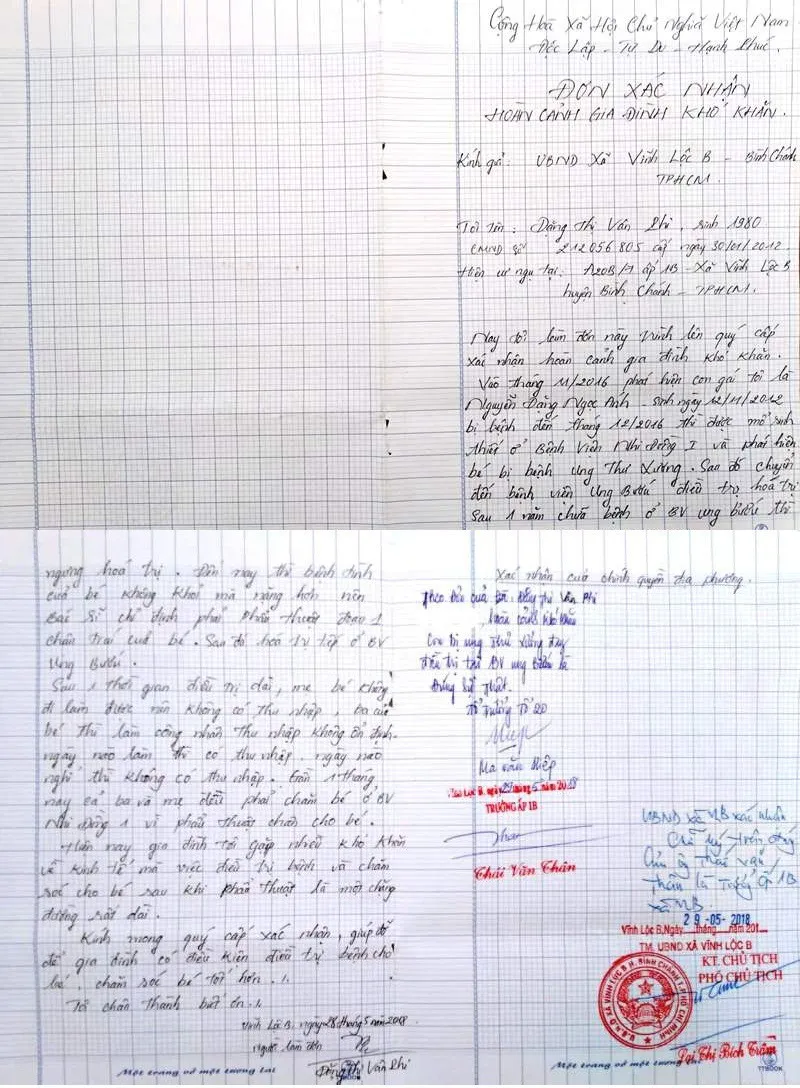 Cộng Hoà Xã Hội Chủ Nghĩa Việt Nam
Độc Lập - Tự Do - Hạnh Phúc
ĐƠN XÁC NHẬN
HOÀN CẢNH GIA ĐÌNH KHÓ KHĂN.
Kính gửi: UBND Xã Vĩnh Lộc B - Bình Chánh
TPHCM.
Tôi tên: Đặng Thị Vân Phi, sinh 1980
CMND số 212056805 cấp ngày 30/01/2012.
Hiện cư ngụ tại: A20B/7 ấp 1B - Xã Vĩnh Lộc B
huyện Bình Chánh - TPHCM.
Nay tôi làm đơn này trình lên quý cấp
xác nhận hoàn cảnh gia đình khó khăn.
Vào tháng 11/2016 phát hiện con gái tôi là
Nguyễn Đặng Ngọc Ánh - sinh ngày 12/11/2012
bị bệnh đến tháng 12/2016 thì được mổ sinh
thiết ở Bệnh Viện Nhi Đồng I và phát hiện
bé bị bệnh Ung Thư Xương. Sau đó chuyển
đến bệnh viện Ung Bướu điều trị hoá trị
Sau 1 năm chữa bệnh ở BV ung bướu thì
ngưng hoá trị. Đến nay thì bệnh tình
của bé không khỏi mà nặng hơn nên
Bác Sĩ chỉ định phải phẫu thuật đoạn 1
chân trái của bé. Sau đó hoá trị tiếp ở BV
Ung Bướu.
Sau 1 thời gian điều trị dài, mẹ bé không
đi làm được nên không có thu nhập, ba của
bé thì làm công nhân thu nhập không ổn định.
ngày nào làm thì có thu nhập. ngày nào
nghỉ thì không có thu nhập. Gần 1 tháng
nay cả ba và mẹ đều phải chăm bé ở BV
Nhi Đồng 1 vì phẫu thuật chân cho bé.
Hiện nay gia đình tôi gặp nhiều khó khăn
về kinh tế mà việc điều trị bệnh và chăm
sóc cho bé sau khi phẫu thuật là một chặng
đường rất dài.
Kính mong quý cấp xác nhận, giúp đỡ
để gia đình có điều kiện điều trị bệnh cho
bé, chăm sóc bé tốt hơn ./.
Tôi chân thành biết ơn ./.
Vĩnh Lộc B, ngày 28 tháng 5 năm 2018
Người làm đơn
Đặng Thị Vân Phi
Một trang vở một tương lai
Xác nhận của chính quyền địa phương.
Theo Đơn của Bà: Đặng Thị Vân Phi
Hoàn cảnh khó khăn
Con bị ung thư xương đang
điều trị tại BV ung bướu là
Đúng sự thật.
Tổ Trưởng Tổ 20
Ma Văn Hiệp
Vĩnh Lộc B, ngày 29 tháng 5 năm 2018
TRƯỞNG ẤP 1B
Thái Văn Thân
UBND xã VLB xác nhận
Chữ ký trên đúng
của ông Thái Văn
Thân là Trưởng ấp 1B
xã VLB
29-05-2018
Vĩnh Lộc B, Ngày.....tháng.....năm 201...
TM. UBND XÃ VĨNH LỘC B
KT. CHỦ TỊCH
PHÓ CHỦ TỊCH
U.B.N.D XÃ VĨNH LỘC B H. BÌNH CHÁNH T.P HỒ CHÍ MINH
Lại Thị Bích Trâm
Một trang vở một tương lai
TTBOOK